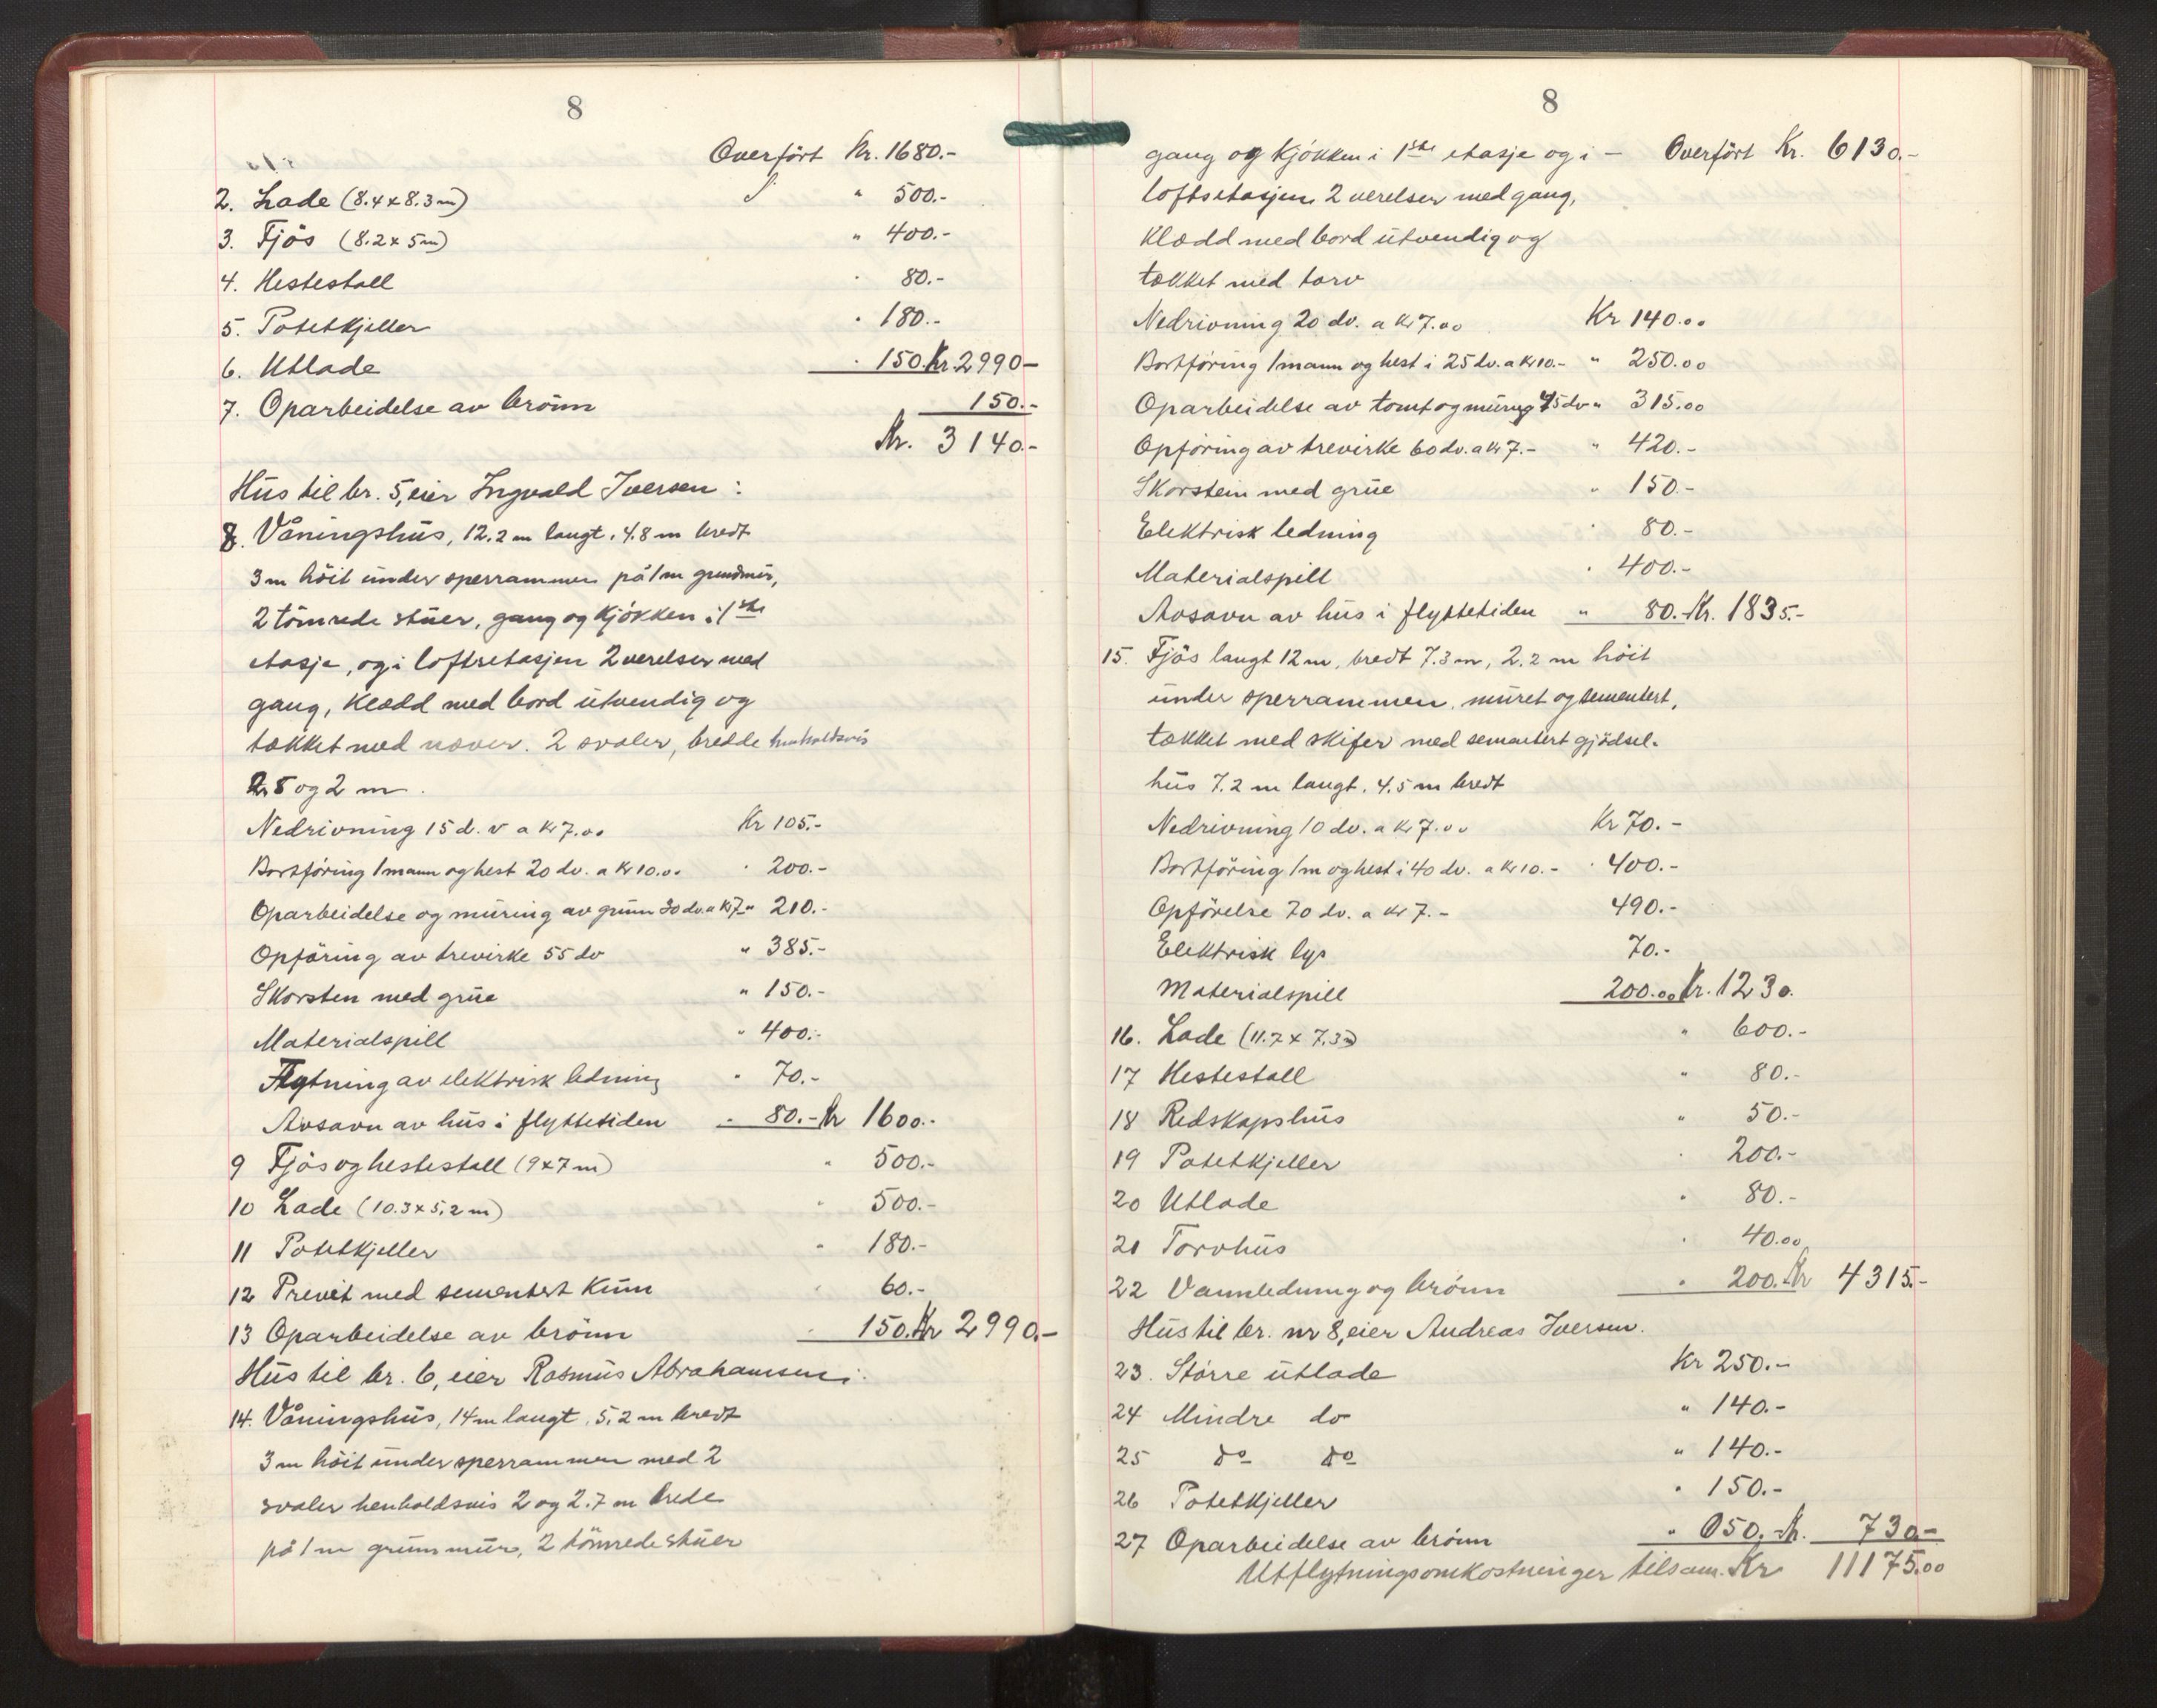 8
Overført Kr. 1680.-
2. Lade (8.4 x 8.3 m) " 500.-
3. Fjøs (8.2 x 5 m) " 400.-
4. Hestestall " 80.-
5. Potetkjeller " 180.-
6. Utlade " 150. Kr. 2990-
7. Oparbeidelse av brønn 150.-
Kr. 3140.-
Hus til br. 5, eier Ingvald Iversen :
8. Våningshus, 12.2 m langt, 4.8 m bredt
3 m høit under sperrammen på 1 m grundmur,
2 tømrede stuer, gang og kjøkken i 1ste
etasje, og i loftsetasjen 2 verelser med
gang, Klædd med bord utvendig og
tækket med næver. 2 svaler, bredde henholdsvis
2.5 og 2 m.
Nedrivning 15 d.v a kr 7.00 Kr 105.-
Bortføring 1 mann og hest 20 dv. a kr 10.00 " 200.-
Oparbeidelse og muring av grunn 30 dv. a kr 7- " 210.-
Opføring av trevirke 55 dv " 385.-
Skorsten med grue " 150.-
Materialspill " 400.-
Flytning av elektrisk ledning " 70.-
Avsavn av hus i flyttetiden " 80.- Kr 1600.-
9 Fjøs og hestestall (9x7 m) " 500.-
10 Lade (10.3 x 5.2 m) " 500.-
11 Potetkjeller " 180.-
12 Prevét med sementert Kum " 60.-
13 Oparbeidelse av brønn " 150. Kr 2990.-
Hus til br. 6, eier Rasmus Abrahamsen :
14. Våningshus, 14 m langt, 5.2 m bredt
3 m høit under sperrammen med 2
svaler henholdsvis 2 og 2.7 m brede
på 1 m grunnmur, 2 tømrede stuer
8
gang og kjøkken i 1ste etasje og i - Overført Kr. 6130.-
loftsetasjen 2 verelser med gang,
Klædd med bord utvendig og
tækket med torv
Nedrivning 20 dv. a kr 7.00 Kr 140.00
Bortføring 1 mann og hest i 25 dv. a kr 10.- " 250.00
Oparbeidelse av tomt og muring 45 dv " 315.00
Opføring av trevirke 60 dv. a kr 7.- " 420.-
Skorstein med grue " 150.-
Elektrisk ledning " 80.-
Materialspill " 400.-
Avsavn av hus i flyttetiden " 80.- Kr. 1835.-
15. Fjøs langt 12 m, bredt 7.3 m, 2.2 m høit
under sperrammen, muret og sementert,
tækket med skifer med sementert gjødsel-
hus 7.2 m langt, 4.5 m bredt
Nedrivning 10 dv. a kr 7.00 Kr 70.-
Bortføring 1 m og hest i 40 dv. a kr 10.- " 400.-
Opførelse 70 dv. a kr 7.- 490.-
Elektrisk lys 70.-
Materialspill 200.00 Kr. 1230.
16. Lade (11.7 x 7.3 m) " 600.-
17 Hestestall " 80.-
18 Redskapshus " 50.-
19 Potetkjeller " 200.-
20 Utlade " 80.-
21 Torvhus " 40.00
22 Vannledning og brønn " 200.- Kr 4315.-
Hus til br. nr 8, eier Andreas Iversen.
23. Større utlade Kr 250.-
24 Mindre do " 140.-
25 do do " 140.-
26 Potetkjeller " 150.-
27 Oparbeidelse av brønn " 050.- Kr. 730.-
Utflytningsomkostninger tilsam. Kr 11175.00